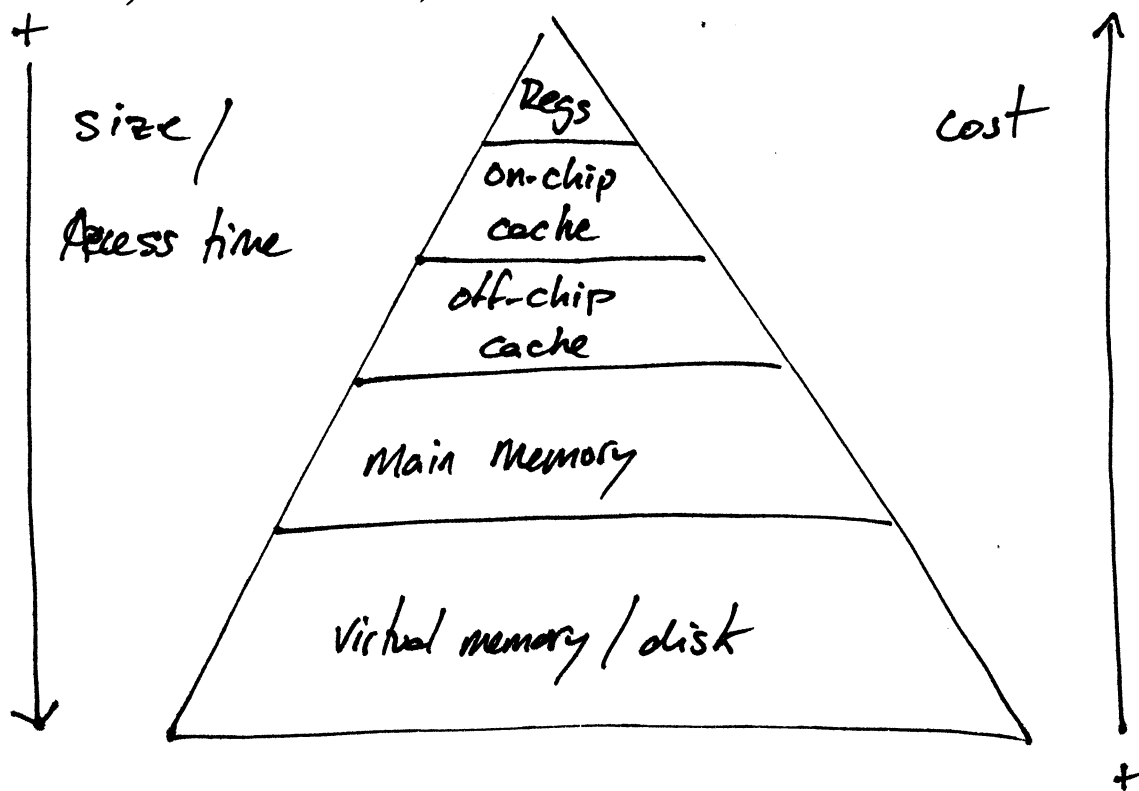 +
size/
Access time
cost
Regs
on-chip
cache
off-chip
cache
Main Memory
Virtual memory / disk
+